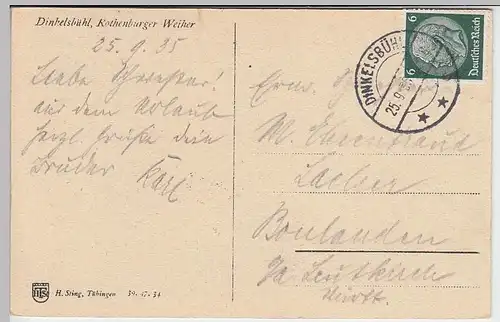 Dinkelsbühl, Rothenburger Weiher
25.9.35
Liebe Schwester!
aus dem Urlaub
herzl. Grüße dein
Bruder Karl
H. Sting, Tübingen 39. 47. 34
DINKELSBÜHL
25.9.
6 6
Deutsches Reich
Ehrw.
M. Ehrentraud
Bonlanden
Leutkirch
Württ.